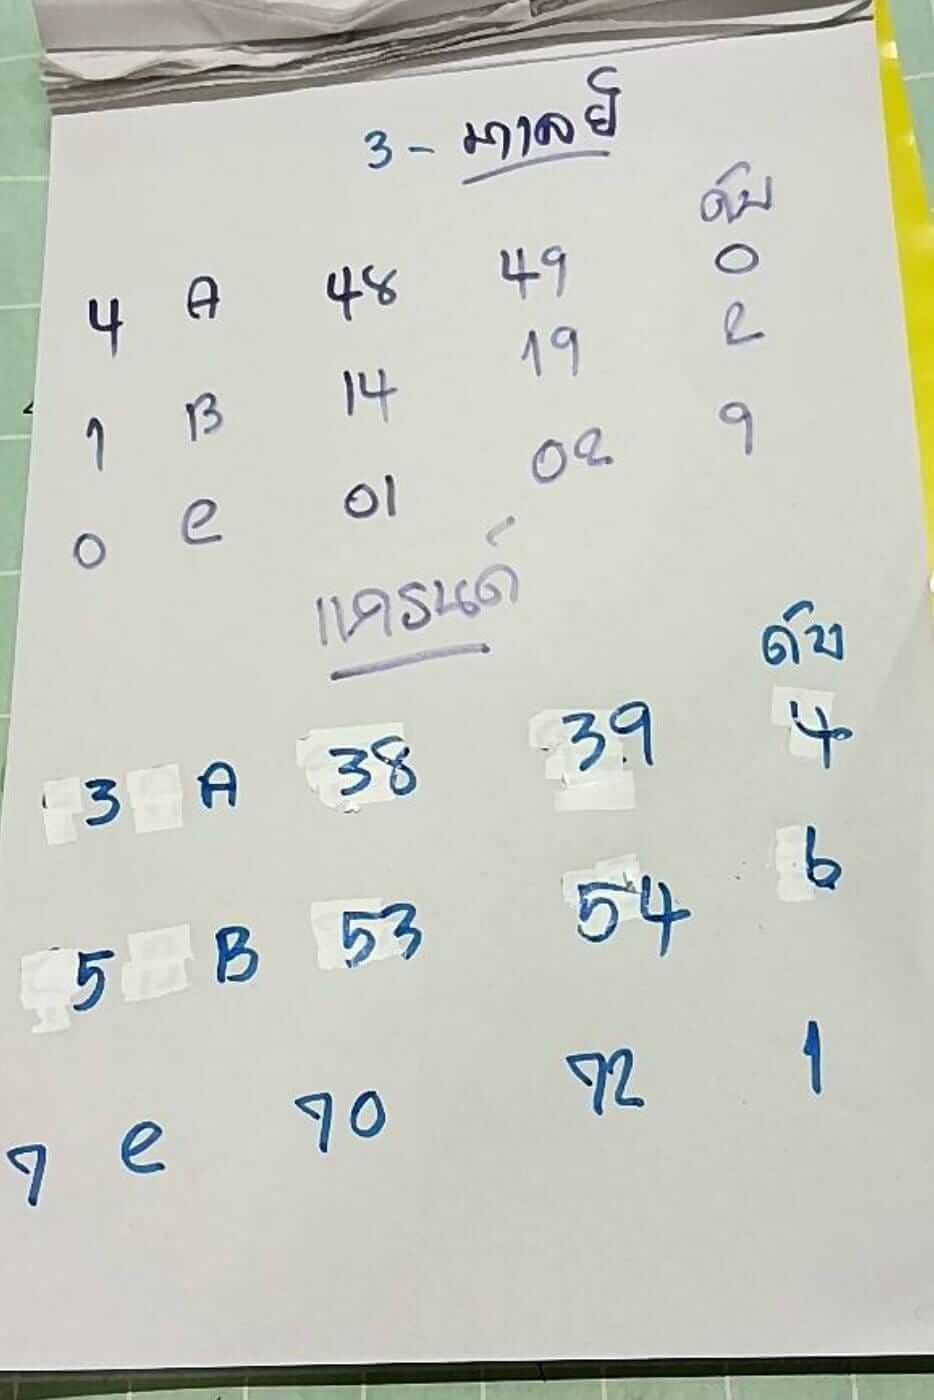 3 - มาลย์
ดับ
4 A 48 49 0
1 B 14 19 2
0 e 01 02 9
แครนด์
ดับ
3 A 38 39 4
5 B 53 54 6
7 e 70 72 1